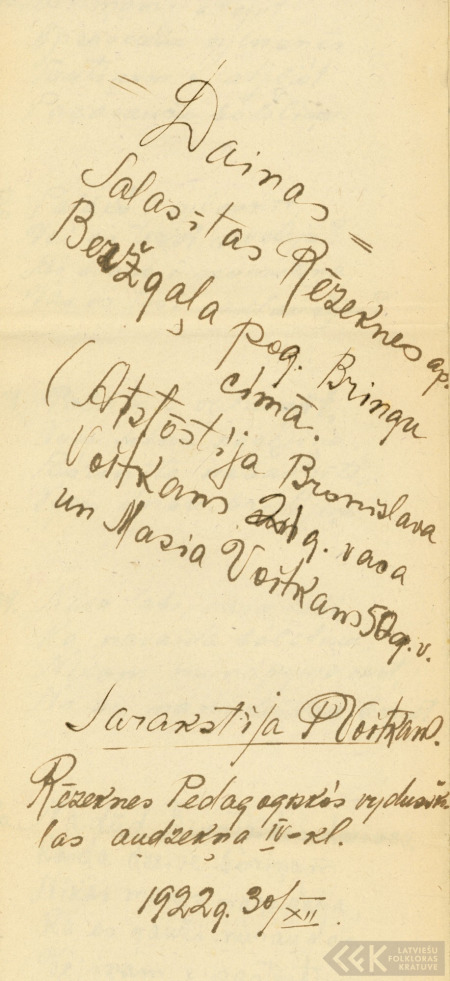 = Dainas =
Salasītas Rēzeknes ap.
Beržgaļa pog. Bringu
cīmā.
(Atstōstīja Bronislava
Voitkans 21g. vaca
un Masia Voitkans 50g.v.
Sarakstīja P Voitkans.
Rēzeknes Pedagogiskōs vydussk
las audzekņa IV-kl.
1922g. 30/XII.
LATVIEŠU
FOLKLORAS
KRATUVE